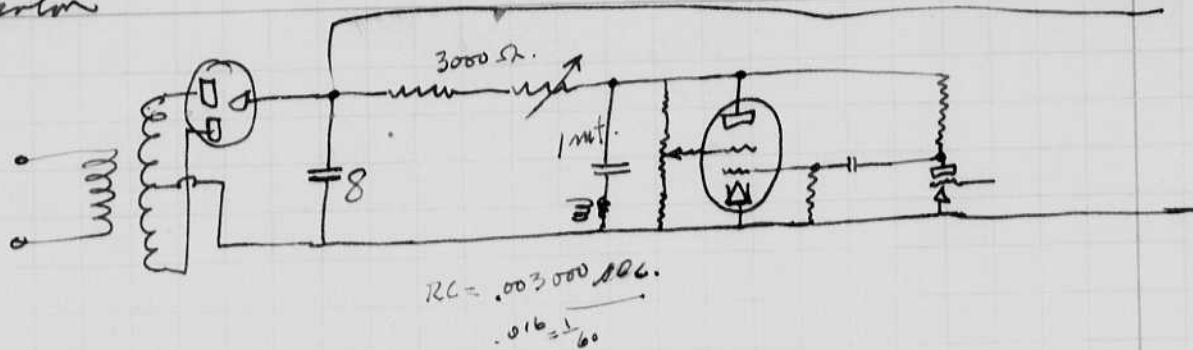 3000 Ω.
1 mf.
8
RC = .003000 sec.
.016 = 1/60